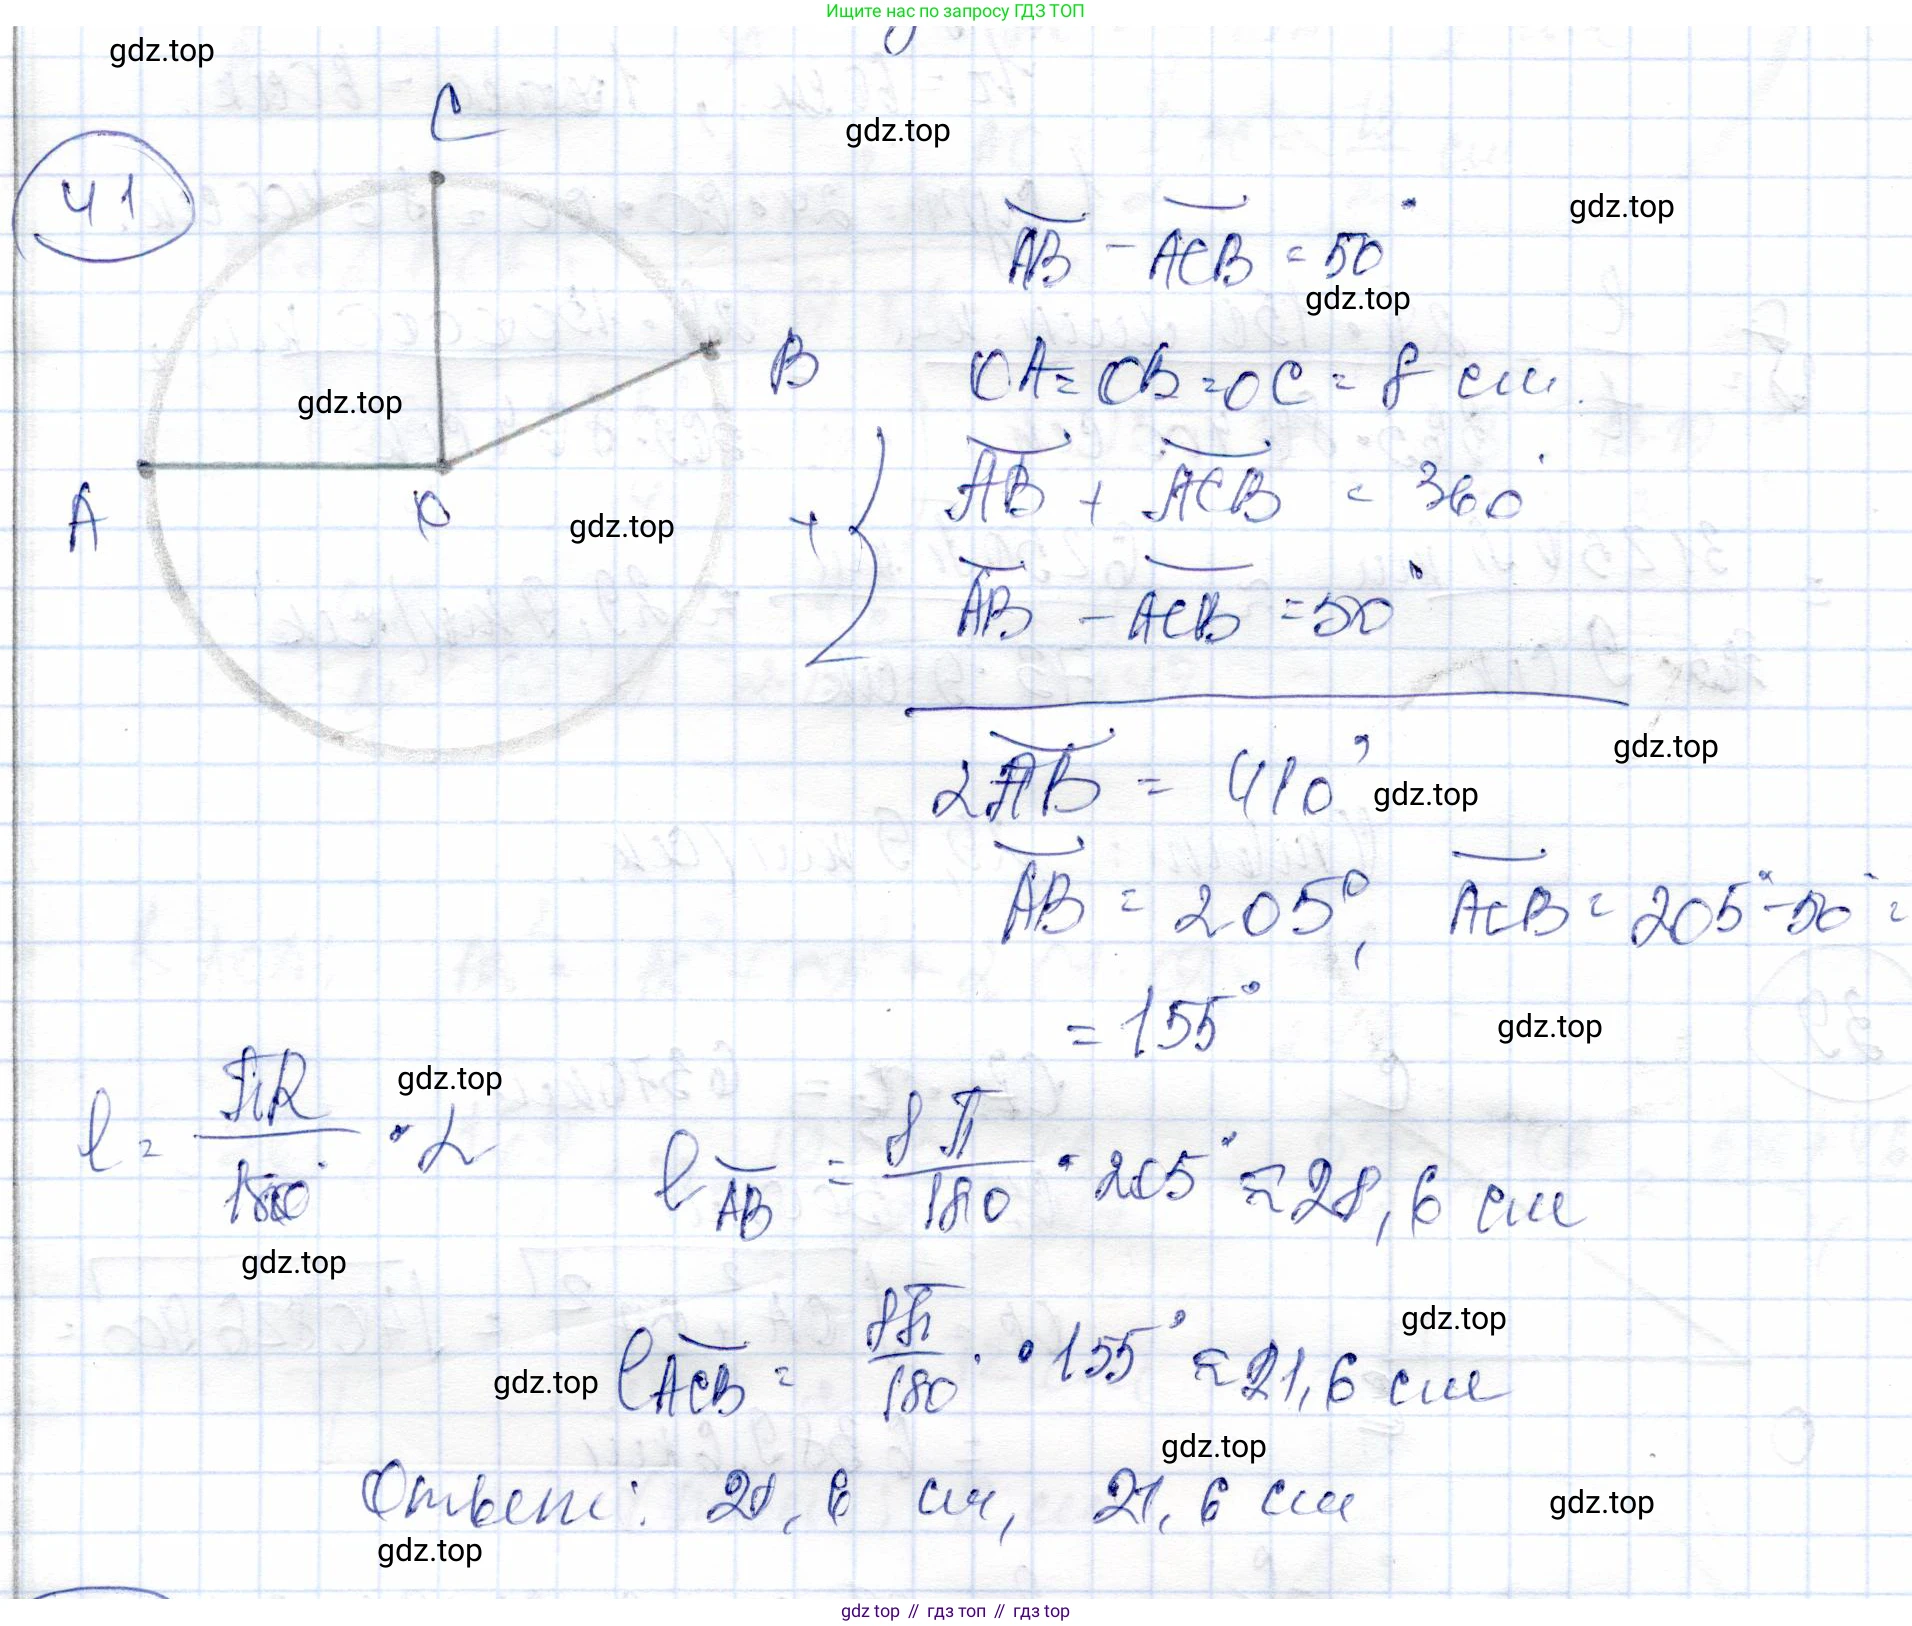 Ищите нас по запросу ГДЗ ТОП
gdz.top
C
gdz.top
41
gdz.top
AB - ACB = 50°
gdz.top
B
OA = OB = OC = 8 см.
gdz.top
A
O
gdz.top
+ { AB + ACB = 360°
AB - ACB = 50°
gdz.top
2AB = 410°
gdz.top
AB = 205°, ACB = 205° - 50° =
= 155°
gdz.top
gdz.top
l = πR/180° · α
l AB = 8π/180 · 205° ≈ 28,6 см
gdz.top
gdz.top
l ACB = 8π/180 · · 155° ≈ 21,6 см
gdz.top
gdz.top
Ответ: 28,6 см, 21,6 см
gdz.top
gdz.top
gdz top // гдз топ // гдз top